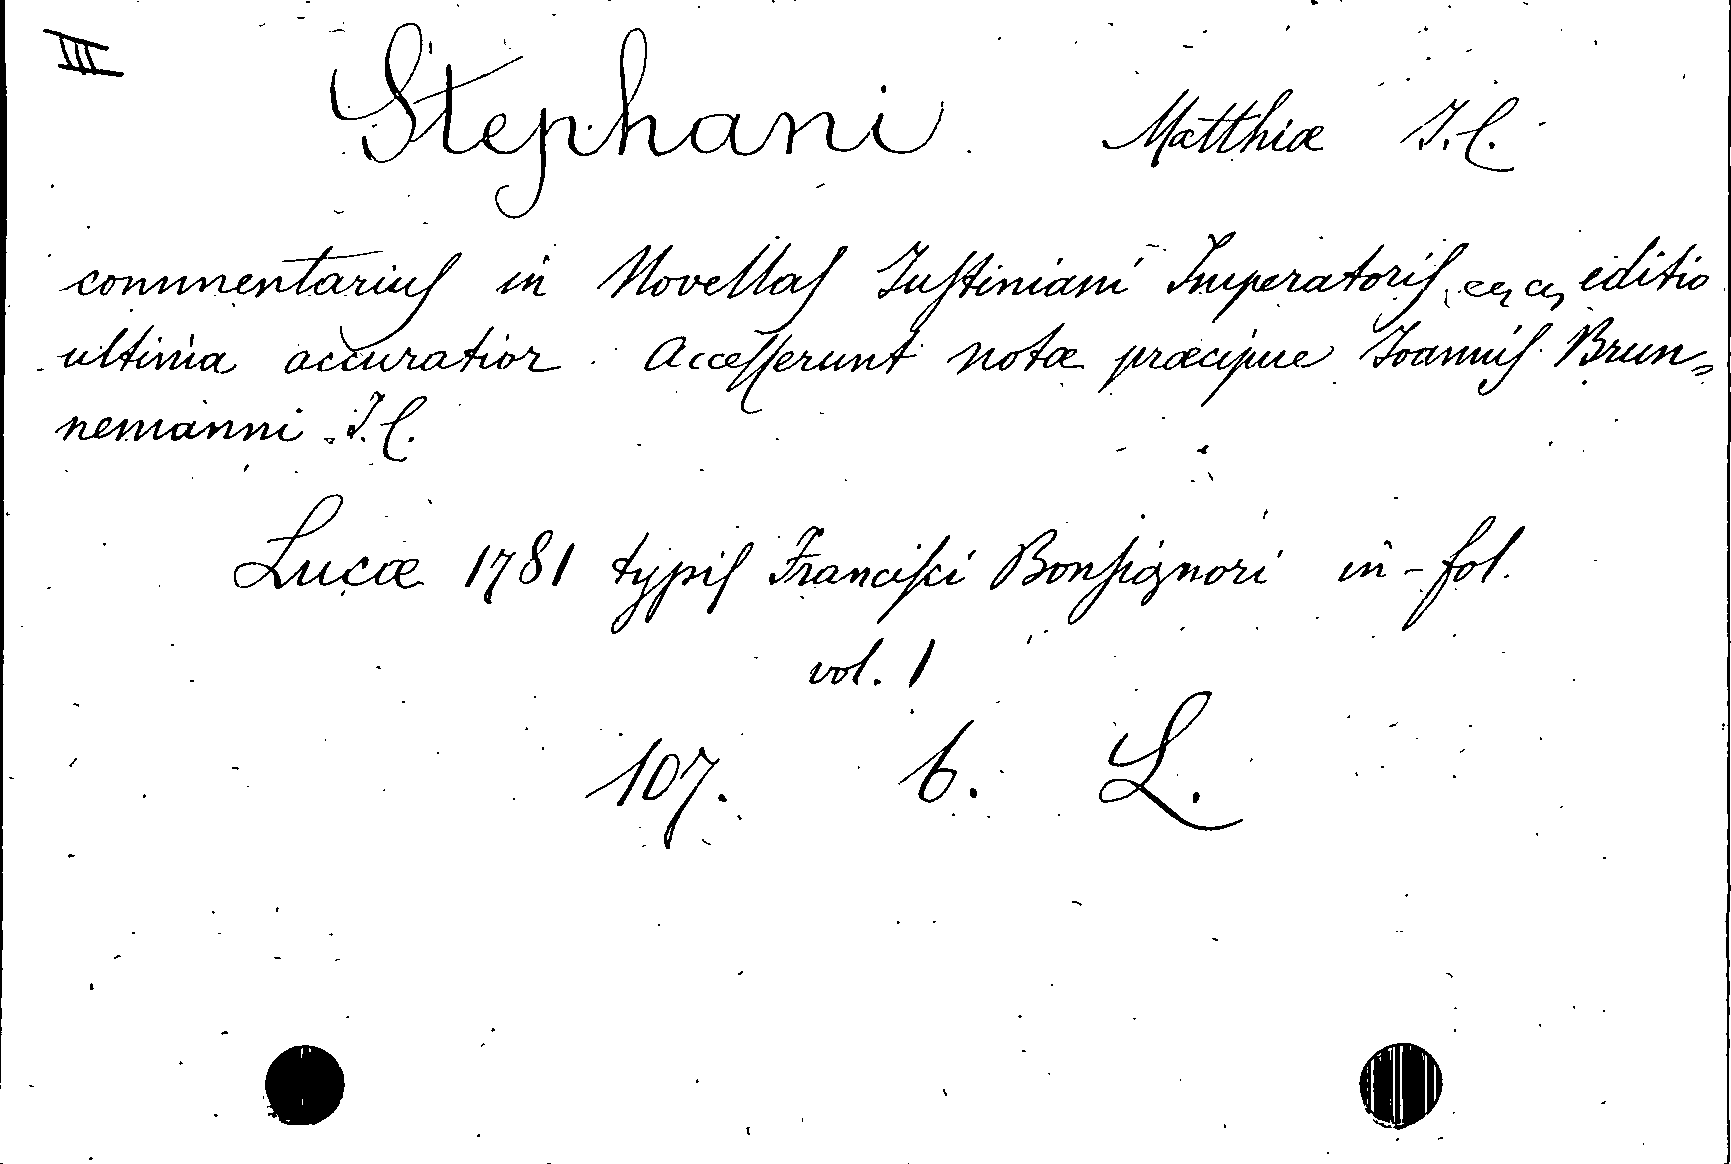 III
Stephani Matthiæ J.C.
commentarius in Novellas Iustiniani Imperatoris editio
ultima accuratior. Accesserunt notæ præcipue Ioannis Brun-
nemanni J.C.
Lucæ 1781 typis Francisci Bonsignori in-fol.
vol. 1
107. 6. L.